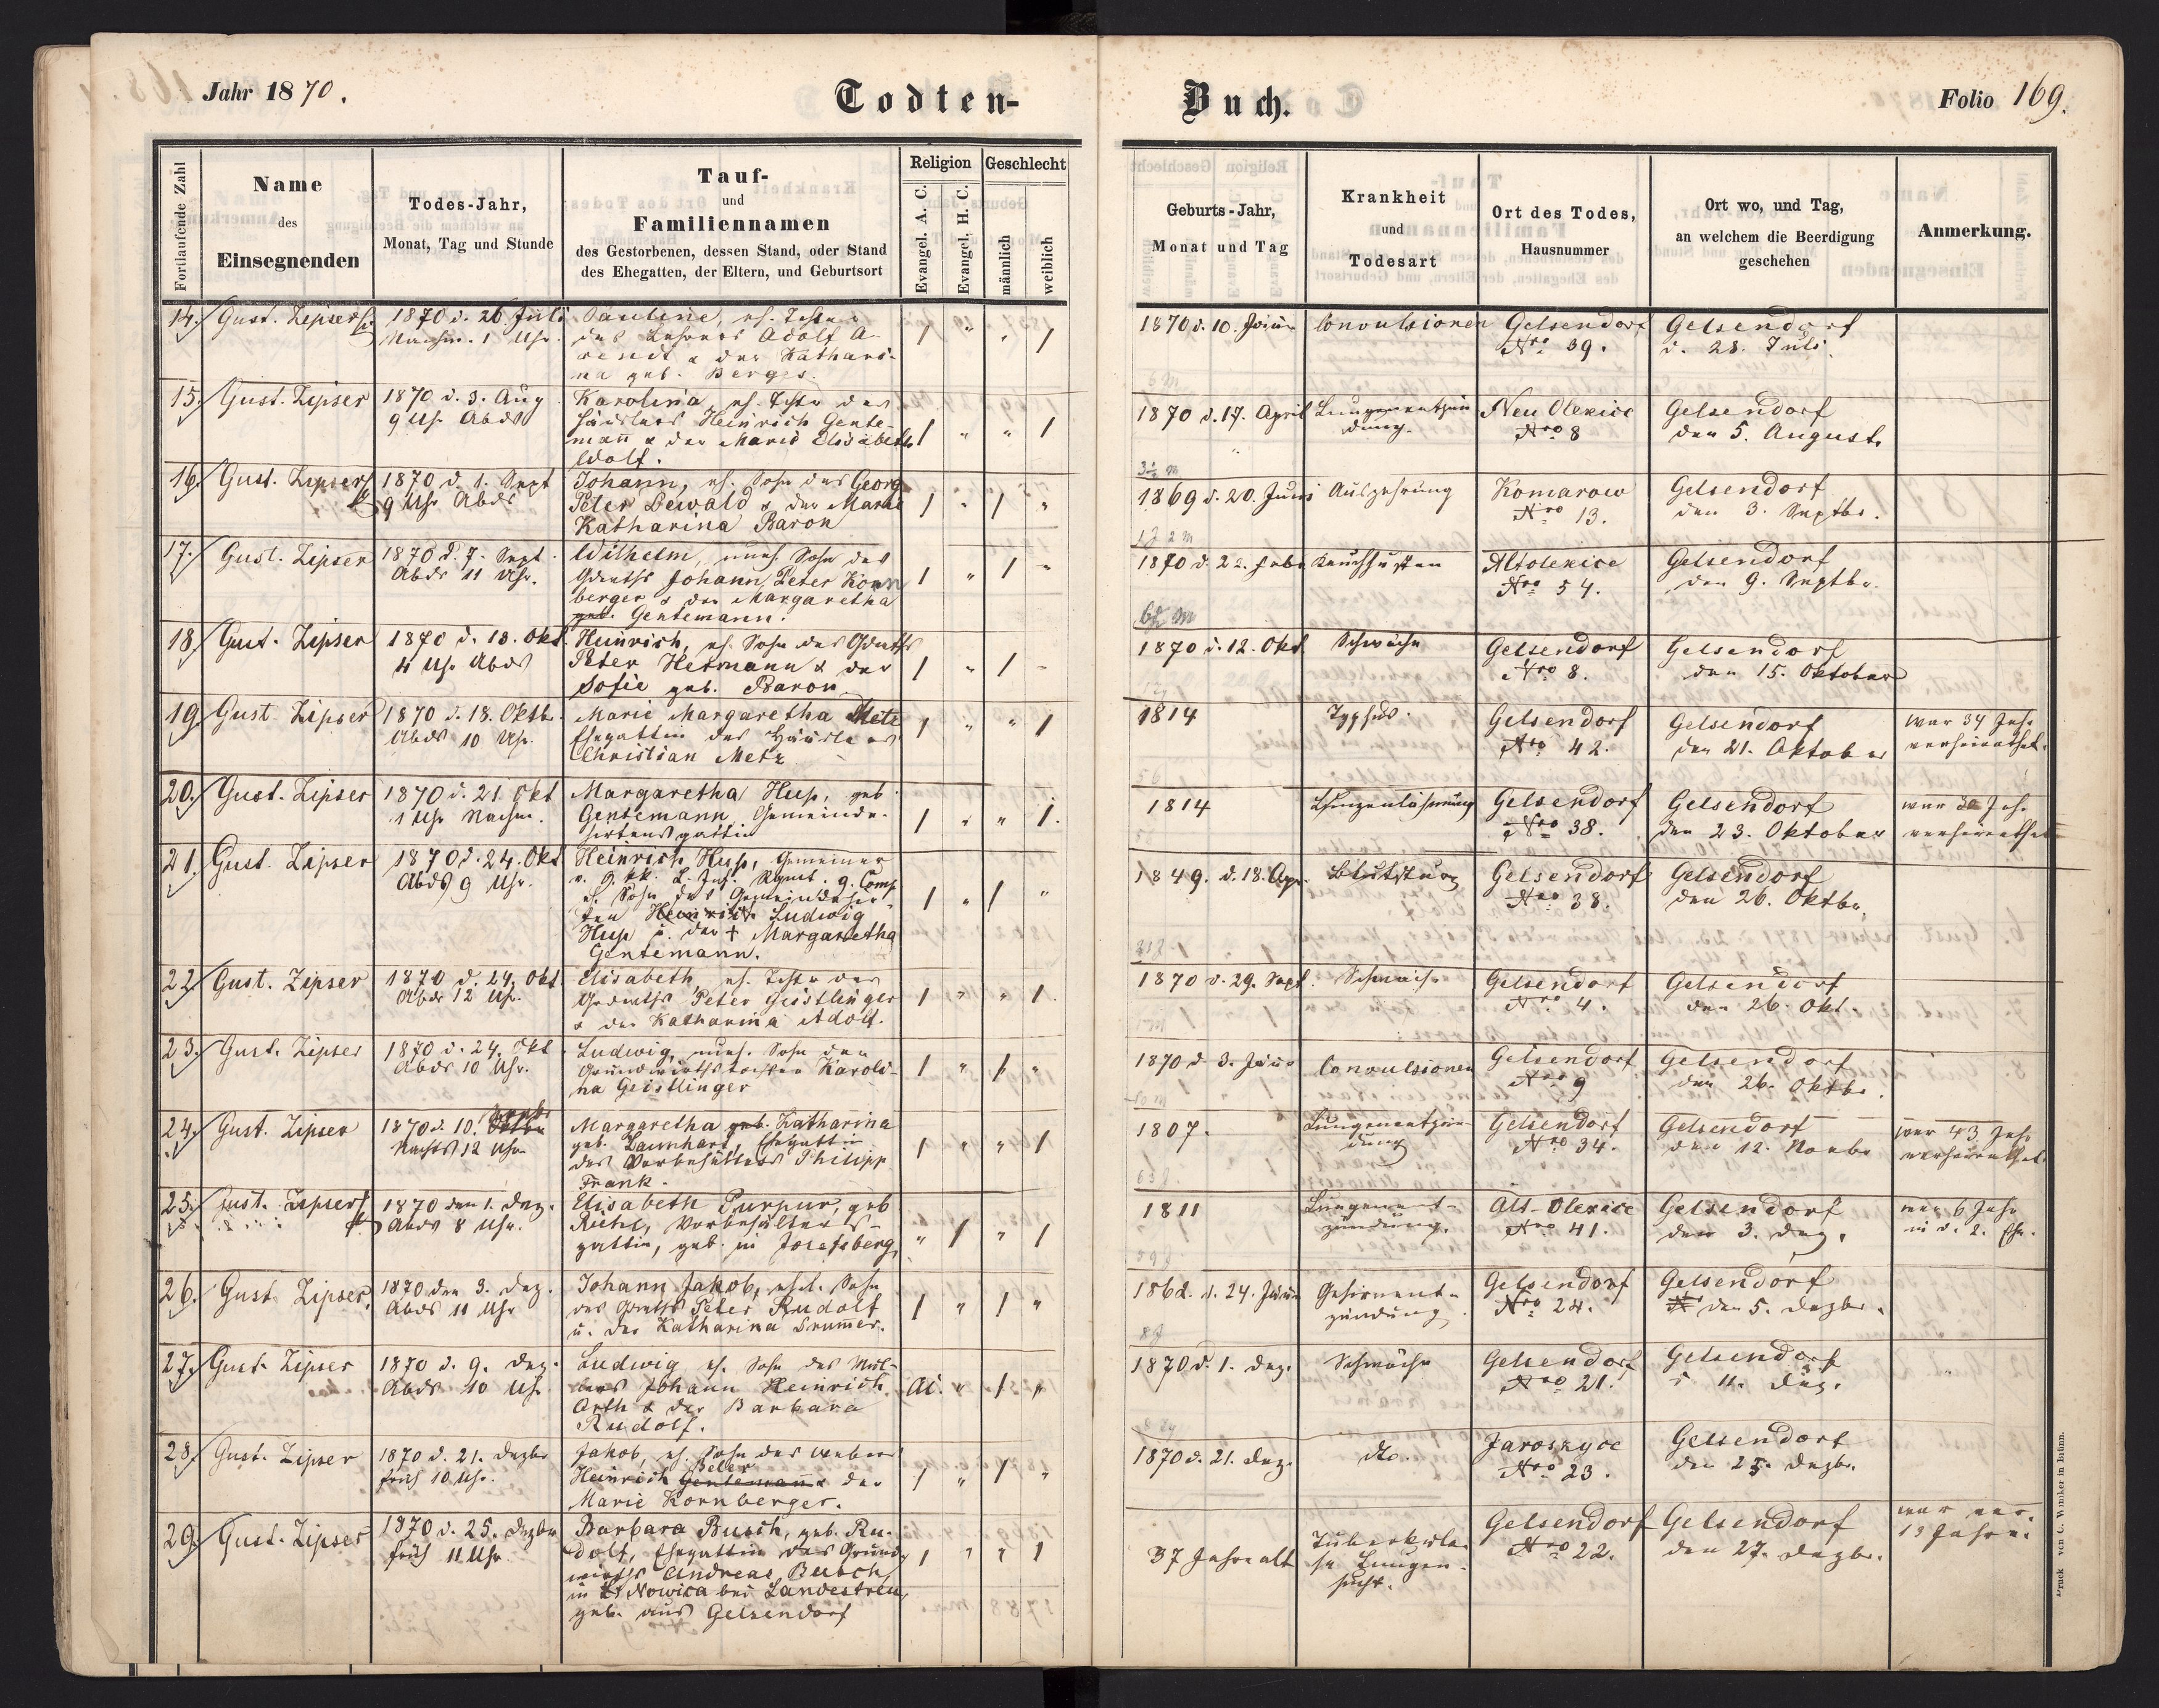 Jahr 1870.
Todten-
Buch.
Folio 169.
Fortlaufende Zahl
Name
des
Einsegnenden
Todes-Jahr,
Monat, Tag und Stunde
Tauf-
und
Familiennamen
des Gestorbenen, dessen Stand, oder Stand
des Ehegatten, der Eltern, und Geburtsort
Religion
Evangel. A. C.
Evangel. H. C.
Geschlecht
männlich
weiblich
Geburts-Jahr,
Monat und Tag
Krankheit
und
Todesart
Ort des Todes,
Hausnummer
Ort wo, und Tag,
an welchem die Beerdigung
geschehen
Anmerkung.
14. Gust. Zipser
1870 d. 26 Juli
Nachm. 1 Uhr.
Pauline, eh. Tochter
des Lehrers Adolf A-
rendt & der Kathari-
na geb. Berges.
/ " " /
1870 d. 10. Convulsionen
Gelsendorf
Nro 39.
Gelsendorf
d. 28. Juli.
15. Gust. Zipser
1870 d. 3. Aug
9 Uhr Abds
Karolina, eh. Tochter des
Häuslers Heinrich Gente-
mann & der Marie Elisabeth
Wolf.
/ " " /
1870 d. 17. April
Lungenentzün
dung.
Neu Olexice
Nro 8
Gelsendorf
den 5. August.
16. Gust. Zipser
1870 d. 1. Sept
9 Uhr Abds
Johann, eh. Sohn des Georg
Peter Dewald & der Marie
Katharina Baron
/ " / "
3½ M
1869 d. 20. Juni
Auszehrung
Komarow
Nro 13.
Gelsendorf
den 3. Septbr.
17. Gust. Zipser
1870 d. 7. Sept.
Abds 11 Uhr.
Wilhelm, uneh. Sohn des
Johann Peter Korn
berger & der Margaretha
geb. Gentemann.
/ " / "
1 J 2 M
1870 d. 22. Febr
Keuchhusten
Altolexice
Nro 54.
Gelsendorf
den 9. Septbr.
18. Gust. Zipser
1870 d. 13. Okt.
4 Uhr Abds
Heinrich, eh. Sohn des
Peter Hetmann & der
Sofie geb. Baron
/ " / "
1870 d. 12. Okt
Schwäche
Gelsendorf
Nro 8.
Gelsendorf
den 15. Oktober
19. Gust. Zipser
1870 d. 18. Oktb.
Abds 10 Uhr.
Marie Margaretha Metz
Ehegattin des Häuslers
Christian Metz
/ " " /
1814
Typhus.
Gelsendorf
Nro 42.
Gelsendorf
den 21. Oktober
war 34 Jahr
verheirathet.
20. Gust. Zipser
1870 d. 21. Okt
1 Uhr Nachm.
Margaretha Hup, geb.
Gentemann, Gemeinde-
hirtensgattin
/ " " /.
56
1814
Lungenlähmung
Gelsendorf
Nro 38.
Gelsendorf
den 23. Oktober
war 30 Jahr
verheirathet
21. Gust. Zipser
1870 d. 24. Okt.
Abds 9 Uhr.
Heinrich Hup, Gemeiner
v. 9. kk. L. Inf. Rgmt. 9. Comp.
eh. Sohn des Gemeindehir-
ten Heinrich Ludwig
Hup u. der + Margaretha
Gentemann.
/ " / "
1849. d. 18. Apr.
Blutsturz
Gelsendorf
Nro 38.
Gelsendorf
den 26. Oktbr.
22. Gust. Zipser
1870 d. 24. Okt.
Abds 12 Uhr.
Elisabeth, eh. Tochter des
Peter Geistlinger
& der Katharina Adolf.
/ " " /
1870 d. 29. Sept.
Schwäche
Gelsendorf
Nro 4.
Gelsendorf
den 26. Okt.
23. Gust. Zipser
1870 d. 24. Okt
Abds 10 Uhr.
Ludwig, uneh. Sohn der
Grundwirthstochter Karoli-
na Geistlinger
/ " / "
1870 d. 3.
Convulsionen
Gelsendorf
Nro 9
Gelsendorf
den 26. Oktbr.
24. Gust. Zipser
1870 d. 10.
Nachts 12 Uhr
Margaretha geb. Katharina
geb. Launhart, Ehegattin
des Vorbehälters Philipp
Frank.
/ " " /
1807.
Lungenentzün-
dung
Gelsendorf
Nro 34.
Gelsendorf
den 12. Novbr
war 43 Jahr
verheirathet.
25. Gust. Zipser
1870 den 1. Dez.
Abds 8 Uhr.
Elisabeth Purpur, geb
Ruhl, Vorbehälters-
gattin, geb. in Josefsberg
" / " /
63 J.
1811
Lungenent-
zündung.
Alt-Olexice
Nro 41.
Gelsendorf
den 3. Dez.
war 6 Jahr
in d. 2. Ehe.
26. Gust. Zipser
1870 den 3. Dez.
Abds 11 Uhr
Johann Jakob, ehel. Sohn
des Peter Rudolf
u. der Katharina Brummer.
/ " / "
59 J
1862. d. 24.
Gehirnent-
zündung
Gelsendorf
Nro 24.
Gelsendorf
den 5. Dezbr.
27. Gust. Zipser
1870 d. 9. Dez.
Abds 10 Uhr.
Ludwig eh. Sohn des Mül-
lers Johann Heinrich
Orth & der Barbara
Rudolf.
" / "
8 J
1870 d. 1. Dez.
Schwäche
Gelsendorf
Nro 21.
Gelsendorf
d 11. Dez.
28. Gust. Zipser
1870 d. 21. Dezbr
früh 10 Uhr.
Jakob, eh. Sohn des Webers
Peter
Heinrich Gentemann & der
Marie Kornberger.
/ " / "
1870 d. 21. Dez.
dto.
Jaroszyce
Nro 23.
Gelsendorf
den 25. Dezbr.
29. Gust. Zipser
1870 d. 25. Dezbr
früh 11 Uhr.
Barbara Busch, geb. Ru-
dolf, Ehegattin des Grund-
wirths Andreas Busch
in Nowica bei Landestreu,
geb. aus Gelsendorf
/ " " /
37 Jahre alt
Tuberkulo-
se Lungen-
sucht.
Gelsendorf
Nro 22.
Gelsendorf
den 27. Dezbr.
war ver.
19 Jahre.
Druck von C. Winiker in Brünn.